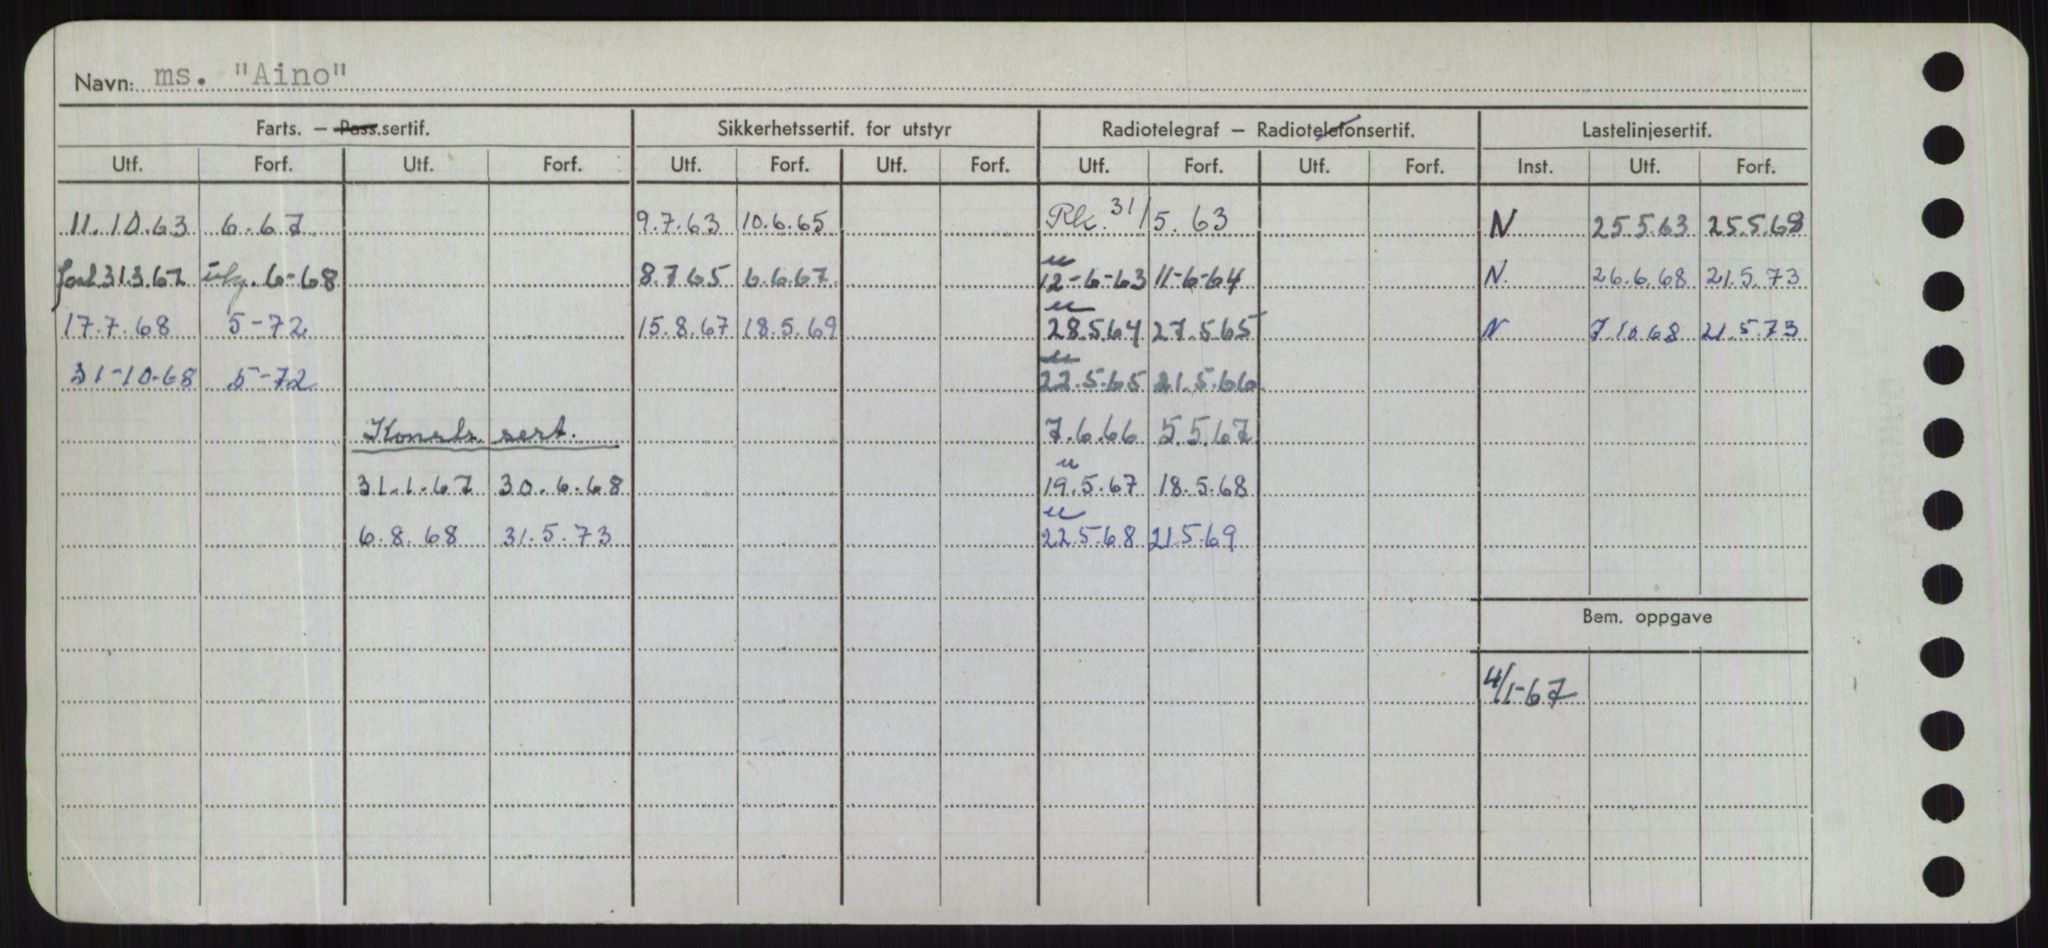 Navn: ms. "Aino"
Farts. — Pass.sertif. Sikkerhetssertif. for utstyr Radiotelegraf — Radiotelefonsertif. Lastelinjesertif.
Utf. Forf. Utf. Forf. Utf. Forf. Utf. Forf. Utf. Forf. Utf. Forf. Inst. Utf. Forf.
11.10.63 6.67 9.7.63 10.6.65 Rk. 31/5.63 N 25.5.63 25.5.68
31.3.67 6-68 8.7.65 6.6.67 12-6-63 11-6-64 N. 26.6.68 21.5.73
17.7.68 5-72 15.8.67 18.5.69 28.5.64 27.5.65 N 7.10.68 21.5.73
31-10-68 5-72 22.5.65 21.5.66
Konstr. sert. 7.6.66 5.5.67
31.1.67 30.6.68 19.5.67 18.5.68
6.8.68 31.5.73 22.5.68 21.5.69
Bem. oppgave
4/1-67